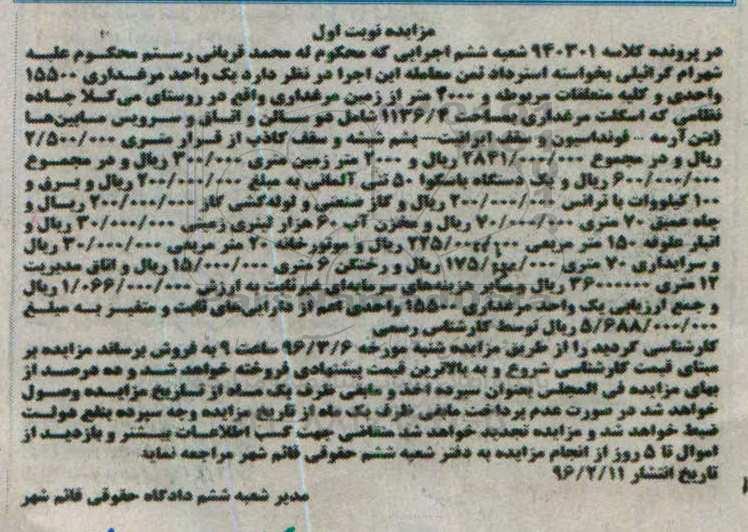 مزایده نوبت اول
در پرونده کلاسه ۹۴۰۳۰۱ شعبه ششم اجرایی که محکوم له محمد قربانی رستم محکوم علیه
شهرام کرائیلی بخواسته استرداد ثمن معامله این اجرا در نظر دارد یک واحد مرغداری ۱۵۵۰۰
واحدی و کلیه متعلقات مربوطه و ۴۰۰۰ متر از زمین مرغداری واقع در روستای می کلا جاده
نظامی که اسکلت مرغداری بمساحت ۱۱۳۶/۴ شامل دو سالن و اتاق و سرویس مابین‌ها
(بتن آرمه – فونداسیون و سقف ایرانیت – پشم شیشه و سقف کاذب از قرار متری ۲/۵۰۰/۰۰۰
ریال و در مجموع ۲۸۴۱/۰۰۰/۰۰۰ ریال و ۲۰۰۰ متر زمین متری ۳۰۰/۰۰۰ ریال و در مجموع
۶۰۰/۰۰۰/۰۰۰ ریال و یک دستگاه باسکول ۵۰ تنی آلمانی به مبلغ ۲۰۰/۰۰۰/۰۰۰ ریال و برق و
۱۰۰ کیلووات با ترانس ۲۰۰/۰۰۰/۰۰۰ ریال و گاز صنعتی و لوله کشی گاز ۲۰۰/۰۰۰/۰۰۰ ریال و
چاه عمیق ۷۰ متری ۷۰/۰۰۰/۰۰۰ ریال و مخزن آب ۶۰ هزار لیتری زمینی ۳۰/۰۰۰/۰۰۰ ریال و
انبار علوفه ۱۵۰ متر مربعی ۲۲۵/۰۰۰/۰۰۰ ریال و موتورخانه ۲۰ متر مربعی ۳۰/۰۰۰/۰۰۰ ریال
و سرایداری ۷۰ متری ۱۷۵/۰۰۰/۰۰۰ ریال و رختکن ۶ متری ۱۵/۰۰۰/۰۰۰ ریال و اتاق مدیریت
۱۲ متری ۳۶۰۰۰۰۰۰ ریال و سایر هزینه‌های سرمایه‌ای غیر ثابت به ارزش ۱/۰۶۶/۰۰۰/۰۰۰ ریال
و جمع ارزیابی یک واحد مرغداری ۱۵۵۰۰ واحدی اعم از دارایی‌های ثابت و متغیر به مبلغ
۵/۶۸۸/۰۰۰/۰۰۰ ریال توسط کارشناس رسمی
کارشناسی گردید را از طریق مزایده شنبه مورخه ۹۶/۳/۶ ساعت ۹ به فروش برساند مزایده بر
مبنای قیمت کارشناسی شروع و به بالاترین قیمت پیشنهادی فروخته خواهد شد و ده درصد از
بهای مزایده فی المجلس بعنوان سپرده اخذ و مابقی ظرف یک ماه از تاریخ مزایده وصول
خواهد شد در صورت عدم پرداخت مابقی ظرف یک ماه از تاریخ مزایده وجه سپرده بنفع دولت
ضبط خواهد شد و مزایده تجدید خواهد شد متقاضی جهت کسب اطلاعات بیشتر و بازدید از
اموال تا ۵ روز از انجام مزایده به دفتر شعبه ششم حقوقی قائم شهر مراجعه نماید
تاریخ انتشار ۹۶/۲/۱۱
مدیر شعبه ششم دادگاه حقوقی قائم شهر